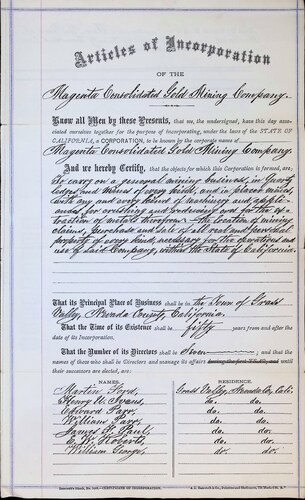 Articles of Incorporation
OF THE
Magenta Consolidated Gold Mining Company.
Know all Men by these Presents, that we, the undersigned, have this day asso-
ciated ourselves together for the purpose of incorporating, under the laws of the STATE OF
CALIFORNIA, a CORPORATION, to be known by the corporate name of
Magenta Consolidated Gold Mining Company.
And we hereby Certify, that the objects for which this Corporation is formed, are;
To carry on a general mining business, in Quartz
ledges and veins of every kind, and in placer mines,
with any and every kind of machinery and appli-
ances for crushing and reducing and for the ex-
traction of metals therefrom. The location of mining
claims, purchase and sale of all real and personal
property of every kind, necessary for the
use of said Company, within the State of California.
That its Principal Place of Business shall be in the Town of Grass
Valley, Nevada County, California.
That the Time of its Existence shall be fifty years from and after
the date of its Incorporation.
That the Number of its Directors shall be Seven ; and that the
names of those who shall be Directors and manage its affairs and until
their successors are elected, are:
NAMES. RESIDENCE.
Martin Ford, Grass Valley, Nevada Co, Cal.
Henry U. Evans, do. do.
Edward Farr, do. do.
William Farr, do. do.
James G. Paul, do. do.
E. W. Roberts, do. do.
William George, do. do.